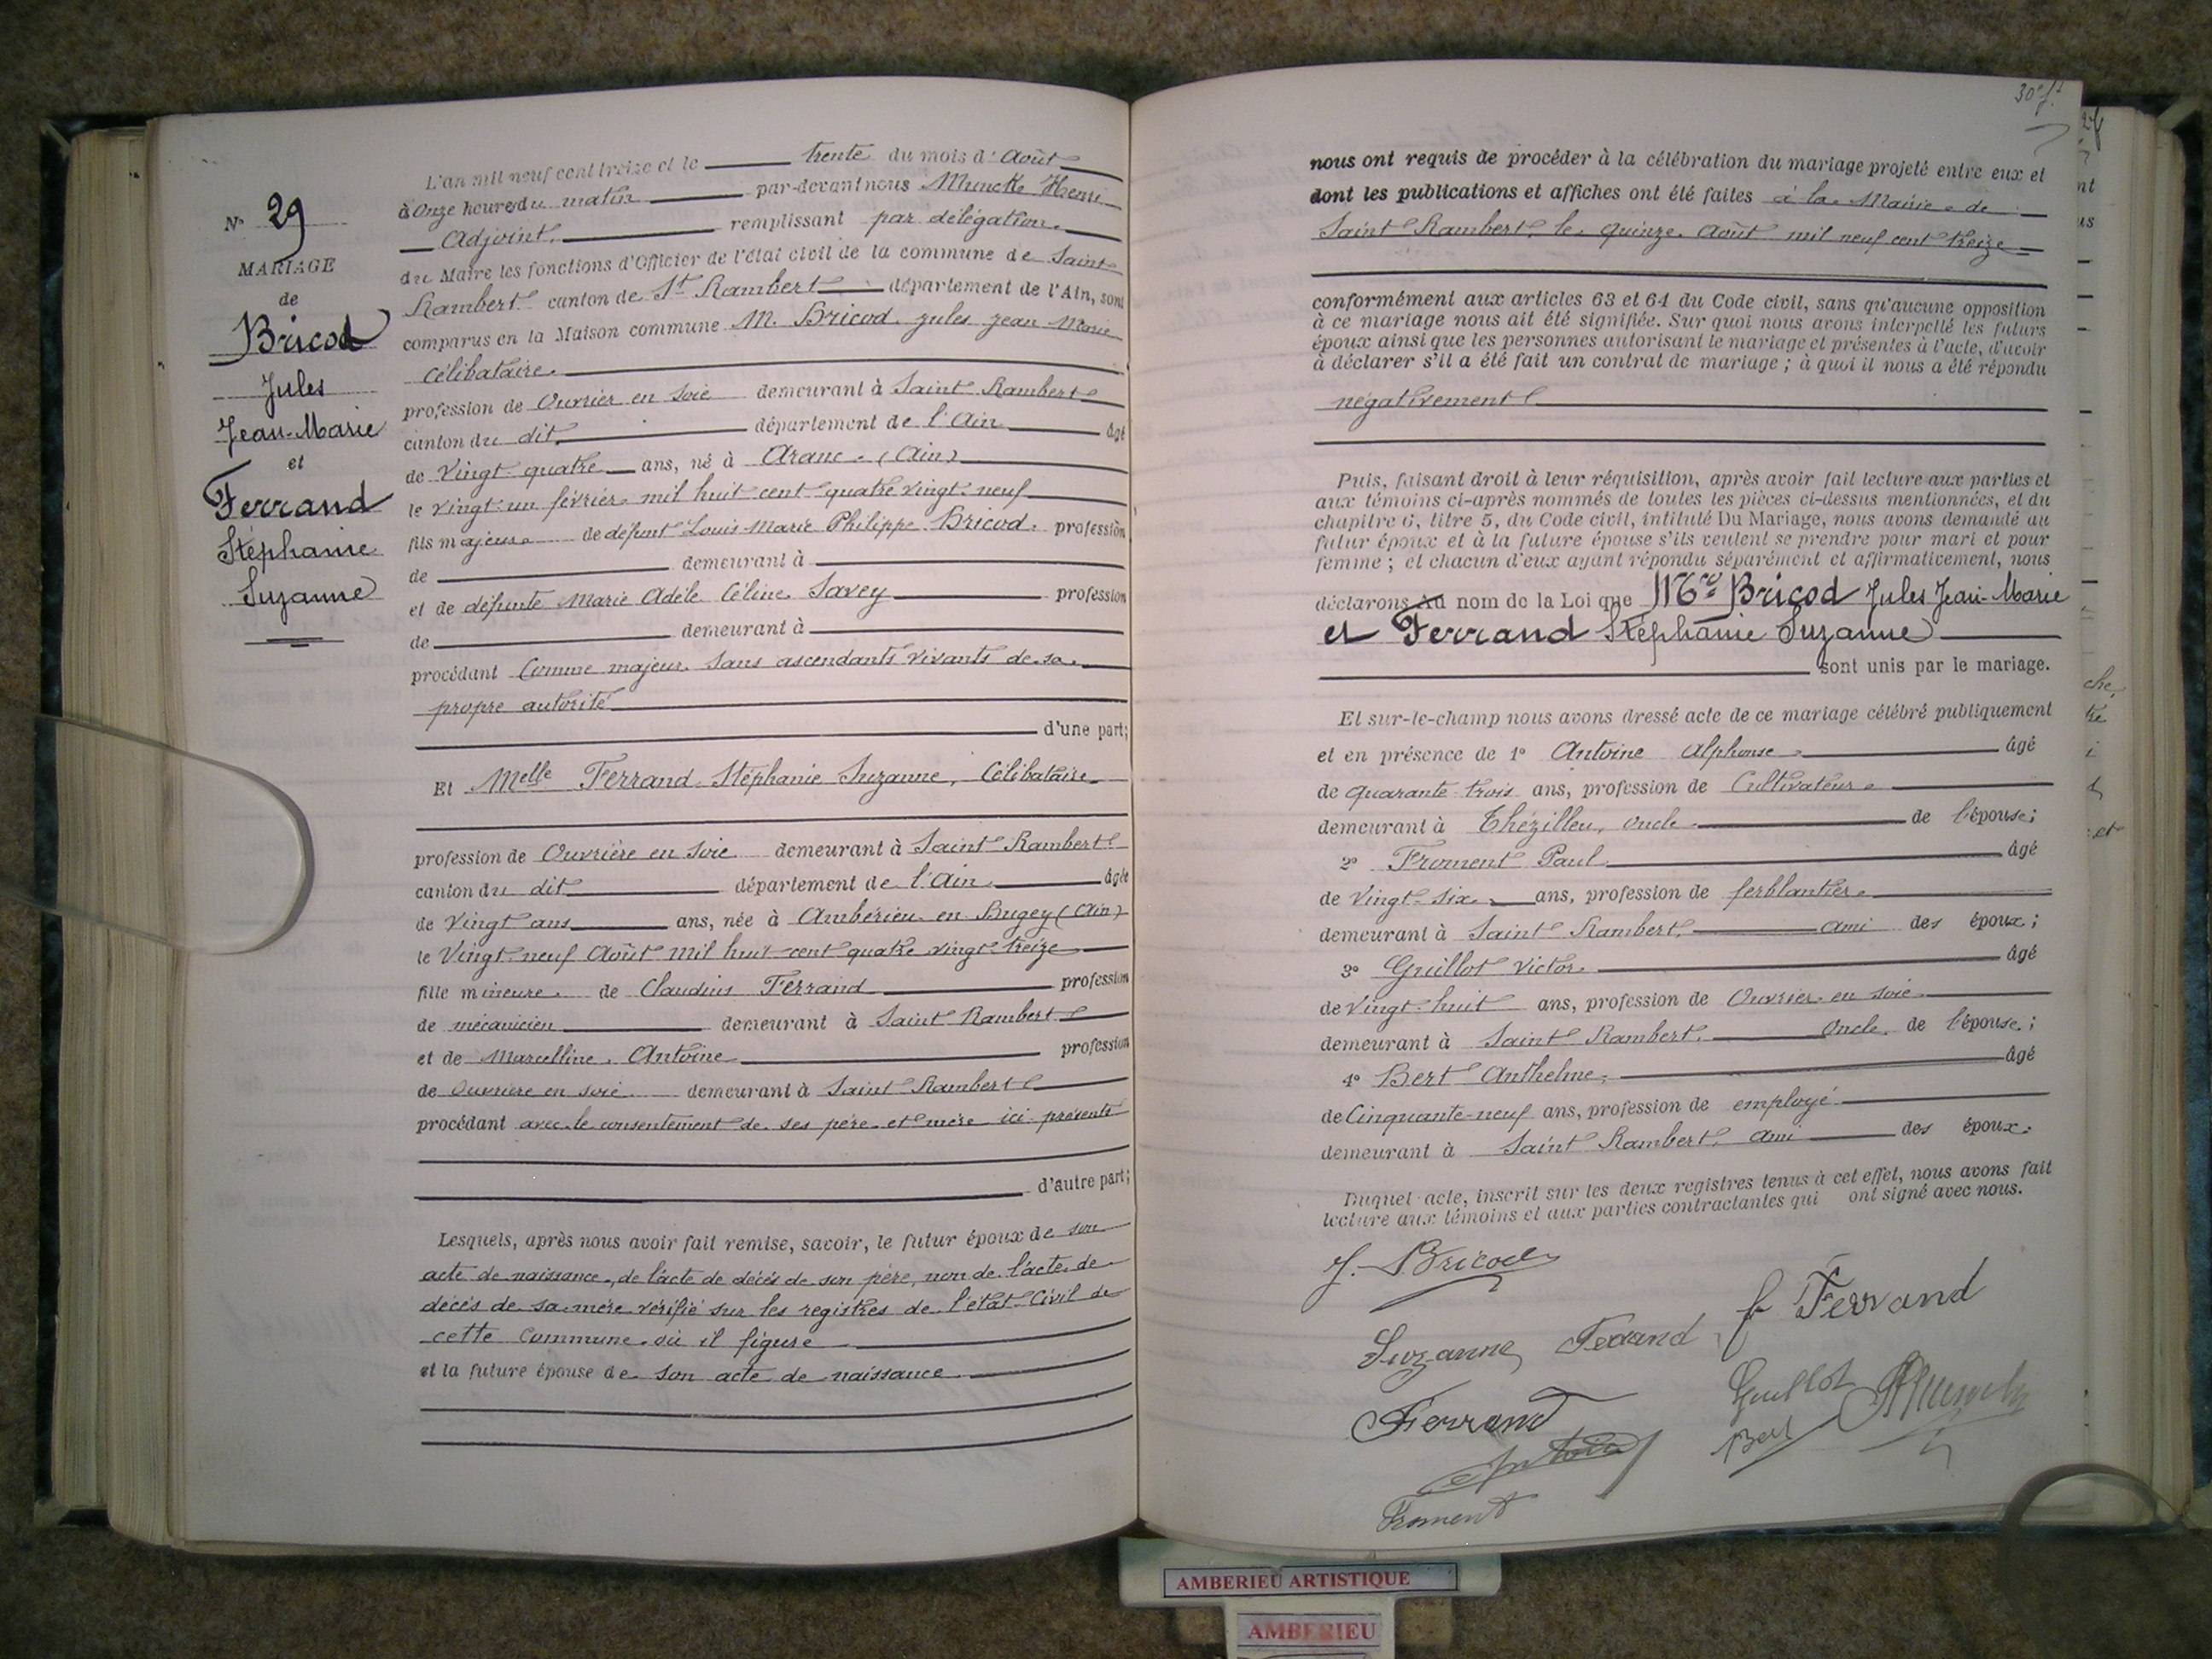 N° 29
MARIAGE
de
Bricod
Jules
Jean-Marie
et
Ferrand
Stéphanie
Suzanne
L'an mil neuf cent treize et le trente du mois d'Août
à Onze heures du matin par-devant nous Munck Henri
Adjoint, remplissant par délégation
du Maire les fonctions d'Officier de l'état civil de la commune de Saint
Rambert canton de St Rambert département de l'Ain, sont
comparus en la Maison commune M. Bricod Jules Jean Marie
célibataire.
profession de Ouvrier en soie demeurant à Saint Rambert
canton du dit département de l'Ain âgé
de Vingt quatre ans, né à Aranc (Ain)
le vingt-un février mil huit cent quatre vingt neuf
fils majeur de défunt Louis Marie Philippe Bricod. profession
de demeurant à
et de défunte Marie Adèle Céline Savey profession
de demeurant à
procédant Comme majeur sans ascendants vivants de sa
propre autorité
d'une part;
Et Melle Ferrand Stéphanie Suzanne, Célibataire
profession de Ouvrière en soie demeurant à Saint Rambert
canton du dit département de l'Ain âgée
de Vingt ans ans, née à Ambérieu en Bugey (Ain)
le Vingt neuf Août mil huit cent quatre vingt treize
fille mineure de Claudius Ferrand profession
de mécanicien demeurant à Saint Rambert
et de Marcelline Antoine profession
de Ouvrière en soie demeurant à Saint Rambert
procédant avec le consentement de ses père et mère ici présents
d'autre part;
Lesquels, après nous avoir fait remise, savoir, le futur époux de son
acte de naissance, de l'acte de décès de son père, non de l'acte de
décès de sa mère vérifié sur les registres de l'état Civil de
cette Commune où il figure
et la future épouse de son acte de naissance
30e ft
nous ont requis de procéder à la célébration du mariage projeté entre eux et
dont les publications et affiches ont été faites à la Mairie de
Saint Rambert le quinze Août mil neuf cent treize
conformément aux articles 63 et 64 du Code civil, sans qu'aucune opposition
à ce mariage nous ait été signifiée. Sur quoi nous avons interpellé les futurs
époux ainsi que les personnes autorisant le mariage et présentes à l'acte, d'avoir
à déclarer s'il a été fait un contrat de mariage ; à quoi il nous a été répondu
négativement
Puis, faisant droit à leur réquisition, après avoir fait lecture aux parties et
aux témoins ci-après nommés de toutes les pièces ci-dessus mentionnées, et du
chapitre 6, titre 5, du Code civil, intitulé Du Mariage, nous avons demandé au
futur époux et à la future épouse s'ils veulent se prendre pour mari et pour
femme ; et chacun d'eux ayant répondu séparément et affirmativement, nous
déclarons Au nom de la Loi que Bricod Jules Jean-Marie
et Ferrand Stéphanie Suzanne
sont unis par le mariage.
Et sur-le-champ nous avons dressé acte de ce mariage célébré publiquement
et en présence de 1° Antoine Alphonse âgé
de quarante trois ans, profession de Cultivateur
demeurant à Thézillieu, oncle de l'épouse;
2° Froment Paul âgé
de Vingt six ans, profession de ferblantier
demeurant à Saint Rambert ami des époux;
3° Guillot Victor âgé
de Vingt huit ans, profession de Ouvrier en soie
demeurant à Saint Rambert, Oncle de l'épouse;
4° Bert Anthelme âgé
de Cinquante-neuf ans, profession de employé
demeurant à Saint Rambert, ami des époux.
Duquel acte, inscrit sur les deux registres tenus à cet effet, nous avons fait
lecture aux témoins et aux parties contractantes qui ont signé avec nous.
J. Bricod
Suzanne Ferrand
f Ferrand
Ferrand
Guillot
Munck
Antoine
Bert
Froment
che,
et
AMBERIEU ARTISTIQUE
AMBERIEU